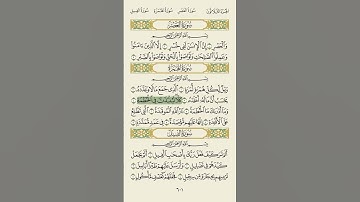 الجزء الثلاثون سورة العصر سورة الهمزة سورة الفيل
سورة العصر
بسم الله الرحمن الرحيم
وَٱلْعَصْرِ ١ إِنَّ ٱلْإِنسَٰنَ لَفِى خُسْرٍ ٢ إِلَّا ٱلَّذِينَ ءَامَنُوا۟
وَعَمِلُوا۟ ٱلصَّٰلِحَٰتِ وَتَوَاصَوْا۟ بِٱلْحَقِّ وَتَوَاصَوْا۟ بِٱلصَّبْرِ ٣
سورة الهمزة
بسم الله الرحمن الرحيم
وَيْلٌ لِّكُلِّ هُمَزَةٍ لُّمَزَةٍ ١ ٱلَّذِى جَمَعَ مَالًا وَعَدَّدَهُۥ ٢
يَحْسَبُ أَنَّ مَالَهُۥٓ أَخْلَدَهُۥ ٣ كَلَّا لَيُنۢبَذَنَّ فِى ٱلْحُطَمَةِ ٤
وَمَآ أَدْرَىٰكَ مَا ٱلْحُطَمَةُ ٥ نَارُ ٱللَّهِ ٱلْمُوقَدَةُ ٦ ٱلَّتِى تَطَّلِعُ
عَلَى ٱلْأَفْـِٔدَةِ ٧ إِنَّهَا عَلَيْهِم مُّؤْصَدَةٌ ٨ فِى عَمَدٍ مُّمَدَّدَةٍۭ ٩
سورة الفيل
بسم الله الرحمن الرحيم
أَلَمْ تَرَ كَيْفَ فَعَلَ رَبُّكَ بِأَصْحَٰبِ ٱلْفِيلِ ١ أَلَمْ يَجْعَلْ
كَيْدَهُمْ فِى تَضْلِيلٍ ٢ وَأَرْسَلَ عَلَيْهِمْ طَيْرًا أَبَابِيلَ ٣
تَرْمِيهِم بِحِجَارَةٍ مِّن سِجِّيلٍ ٤ فَجَعَلَهُمْ كَعَصْفٍ مَّأْكُولٍۭ ٥
٦٠١